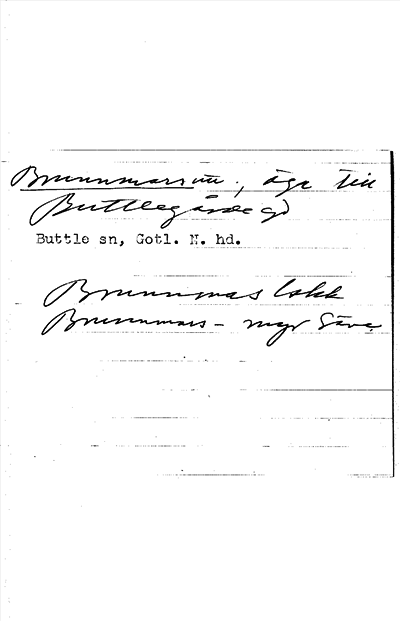 Brunnmarsvät, äga till
Buttlegårde gd
Buttle sn, Gotl. N. hd.
Brunnmas lokk
Brunnmars- myr Säve